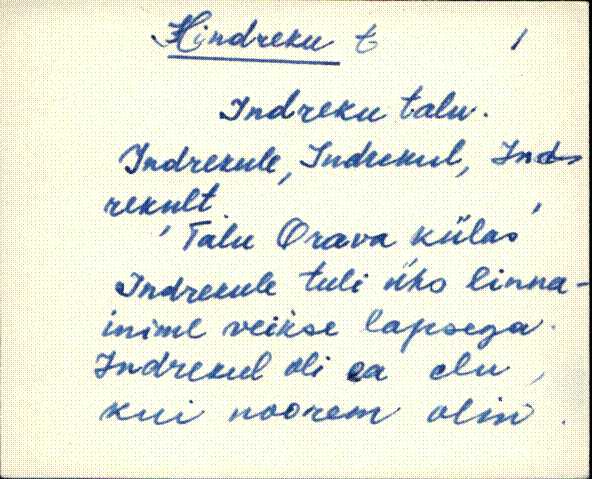 Hindreku t 1
Indreku talu.
Indrekule, Indrekul, Ind-
rekult,
'Talu Orava külas'
Indrekule tuli üks linna-
inime veikse lapsega.
Indrekul oli ea elu,
kui noorem olin.